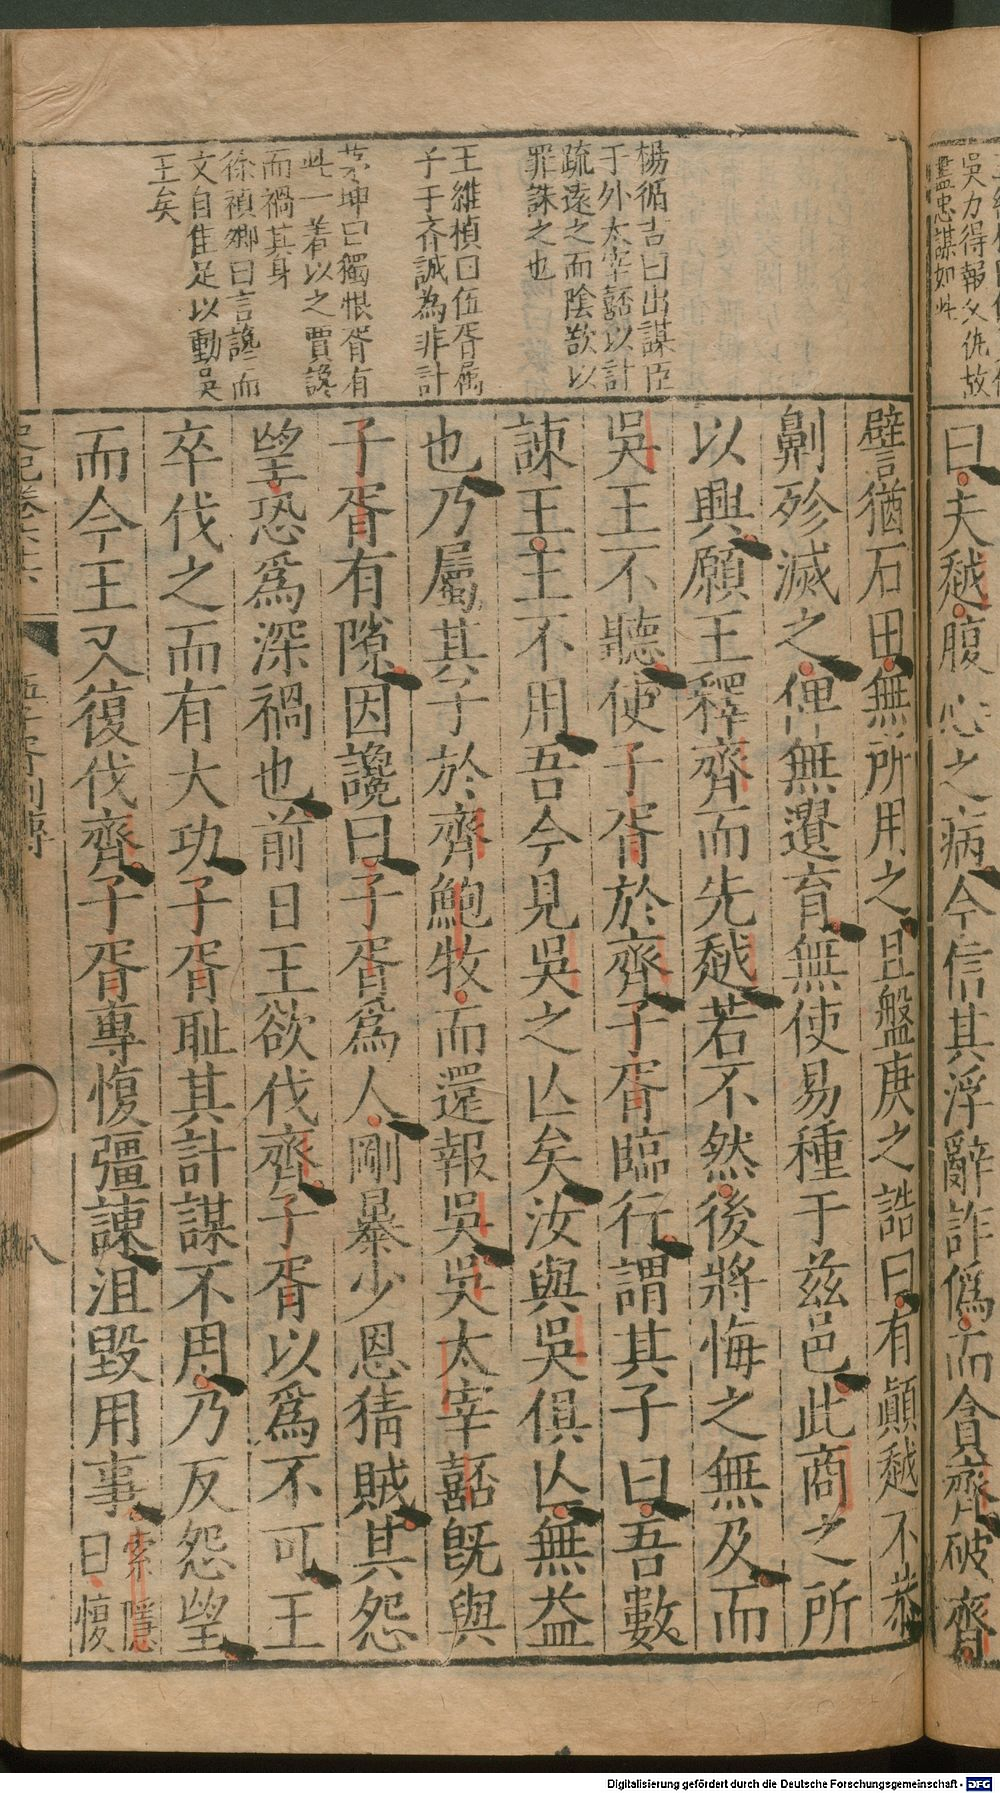 吳力得報父仇故
盡忠謀如此
曰夫越腹心之病今信其浮辭詐偽而貪齊破齊
楊循吉曰出謀臣
于外太宰嚭以計
疏遠之而陰欲以
罪誅之也
王維楨曰伍胥屬
子于齊誠為非計
茅坤曰獨恨胥有
此一着以之賈讒
而禍其身
徐禎卿曰言讒而
文自隹足以動吳
王矣
譬猶石田無所用之且盤庚之誥曰有顚越不恭
劓殄滅之俾無遺育無使易種于茲邑此商之所
以興願王釋齊而先越若不然後將悔之無及而
吳王不聽使子胥於齊子胥臨行謂其子曰吾數
諫王王不用吾今見吳之亾矣汝與吳俱亾無益
也乃屬其子於齊鮑牧而還報吳吳太宰嚭旣與
子胥有隙因讒曰子胥爲人剛暴少恩猜賊其怨
望恐爲深禍也前日王欲伐齊子胥以爲不可王
卒伐之而有大功子胥耻其計謀不用乃反怨望
而今王又復伐齊子胥專愎彊諫沮毀用事索隱
曰愎
史記卷六十六
伍子胥列傳
八
Digitalisierung gefördert durch die Deutsche Forschungsgemeinschaft - DFG